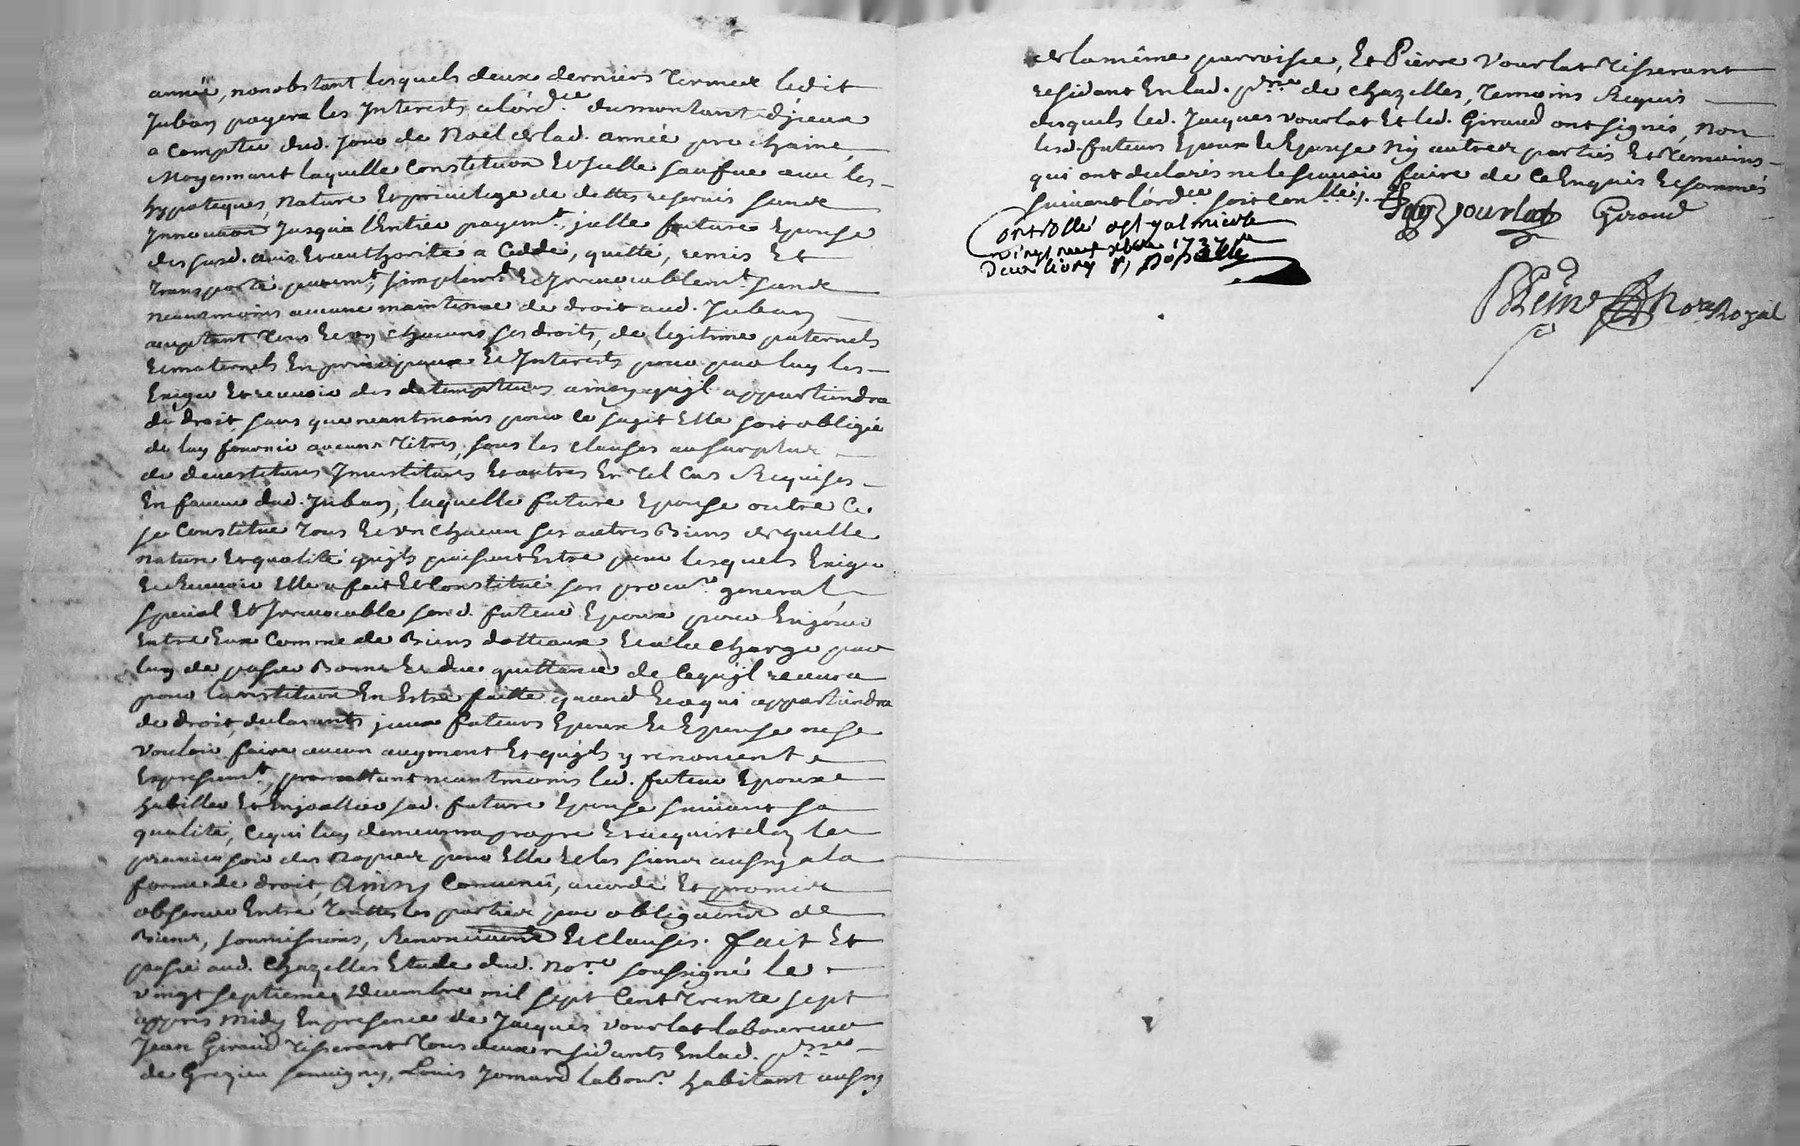 année, nonobstant lesquels deux derniers termes ledit
Juban payera les Interests à l'ord.ce du montant d'jceux
a compter dud. jour de Noel de lad. année prochaine,
Moyennant laquelle Constitution Et jcelle sauf ue avec les
hypoteques, nature Et privilege de dettes reservés sans
Innovaon Jusqu'a l'Entier payem.t, jcelle future Epouse
des susd. avis Et authorité a Cedde, quitté, remis Et
transporté purem.t, simplem.t Et Irrevocablem.t sans
neantmoins aucune maintenue de droit aud. Juban
acceptant tous Et vn chacuns ses droits, de legitime paternels
Et maternels En principaux Et Interests pour par luy les
Exiger Et recevoir des detempteurs ainsy qu'jl appartiendra
de droit, sans que neantmoins pour ce sujet Elle soit obligée
de luy fournir aucuns titres, sous les clauses au surplus
de devestitures Investitures Et autres En tel Cas Requises
En faveur dud. Juban, laquelle future Epouse outre Ce
se Constitue tous Et vn chacun ses autres Biens de quelle
nature Et qualité qu'jls puissent Estre pour lesquels Exiger
Et Recevoir Elle a fait Et Constitué son procur.r general
special Et Irrevocable sond. futeur Epoux pour En jouir
Entre Eux Comme de Biens dotteaux Et a la charge par
luy de passer Bonne Et due quittance de ce qu'jl recevra
pour Constitution En Estre faitte quand Et a qui appartiendra
de droit, declarants jceux futeurs Epoux Et Epouse ne se
vouloir faire aucun augment Et qu'jls y renoncent
Expressem.t, promettant neantmoins led. futeur Epoux
habiller Et Enjoaller sad. future Epouse suivant sa
qualité, Ce qui luy demeurera propre Et acquist dez le
premier soir des Nopces pour Elle Et les siens aussy a la
forme de droit, Ainsy Convenû, accordé Et promis
observer Entre touttes les parties par obligaons de
Biens, soumissions, Renonciaons Et clauses. fait Et
passé aud. Chazelles Etude dud. No.re soussigné le
vingt septieme decembre mil sept Cent trente sept
appres midy En presence de Jacques vourlat laboureur
Jean Giraud tisserant tous deux residants En lad. p.sse
de Grezieu souvigny, Louis Jomard labour.r habitant aussy
de la mème parroisse, Et Pierre vourlat tisserant
residant En lad. p.sse de chazelles, temoins Requis
desquels led. Jacques vourlat Et led. Giraud ont signés, Non
lesd. futeurs Epoux Et Epouse Ny autres parties Et temoins
qui ont declarés ne le sçavoir faire de Ce Enquis Et sommés
suivant l'ord.ce soit con.llé ;.
Jaq vourlat Giraud
Controllé a st galmier le
vingt neuf xbre 1737 Rx
deux livres
Reine No.re Royal